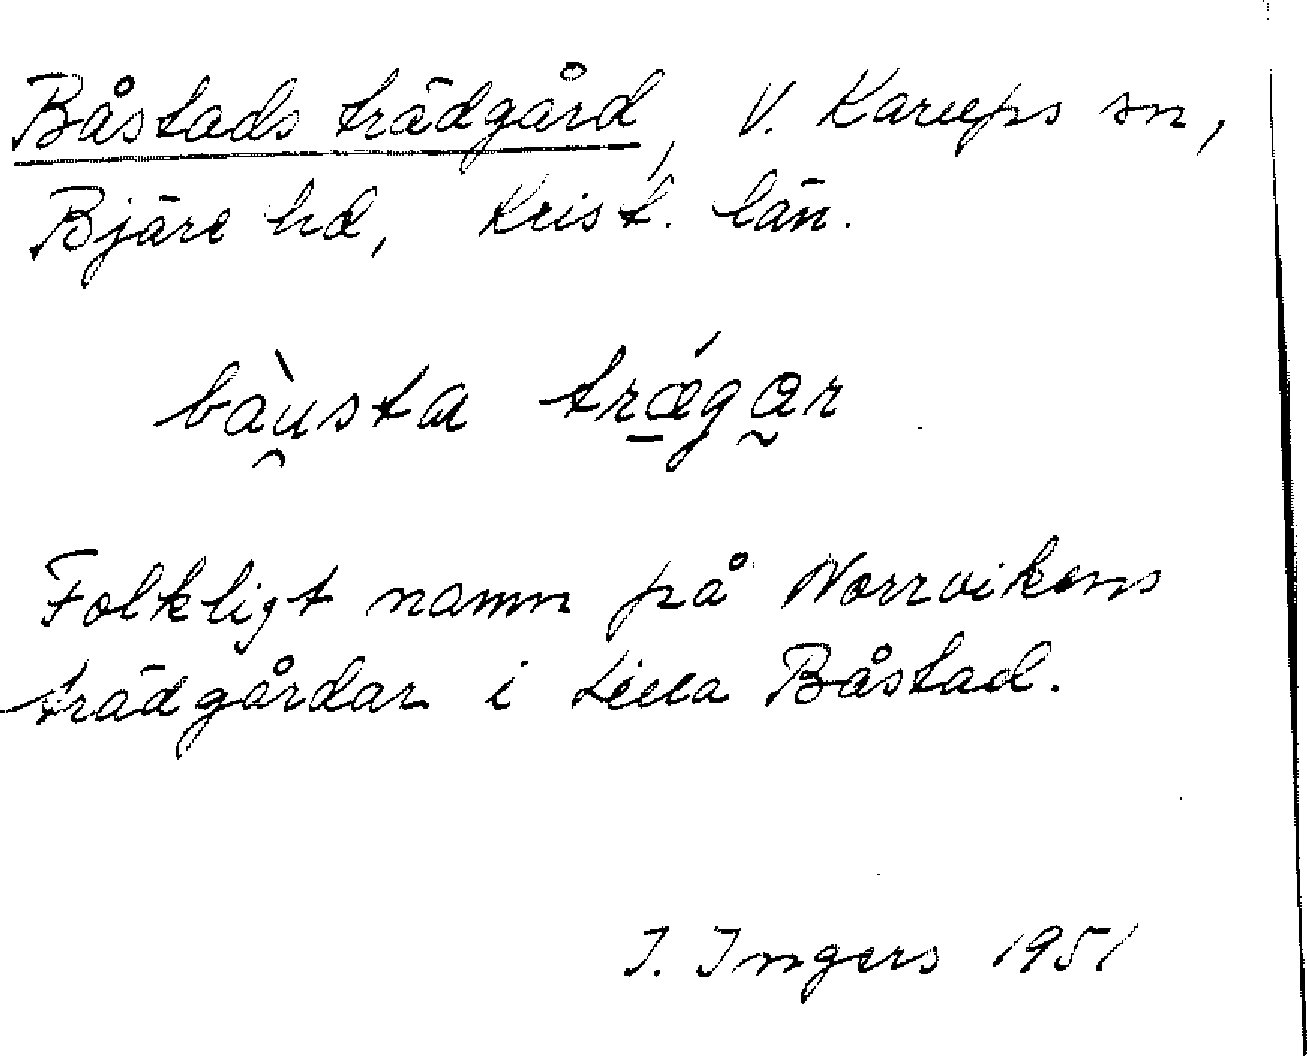 Båstads trädgård, V. Karups sn,
Bjäre hd, Krist. län.
bàu̯sta trǽ̲ga̰r
Folkligt namn på Norrvikens
trädgårdar i Lilla Båstad.
I. Ingers 1951